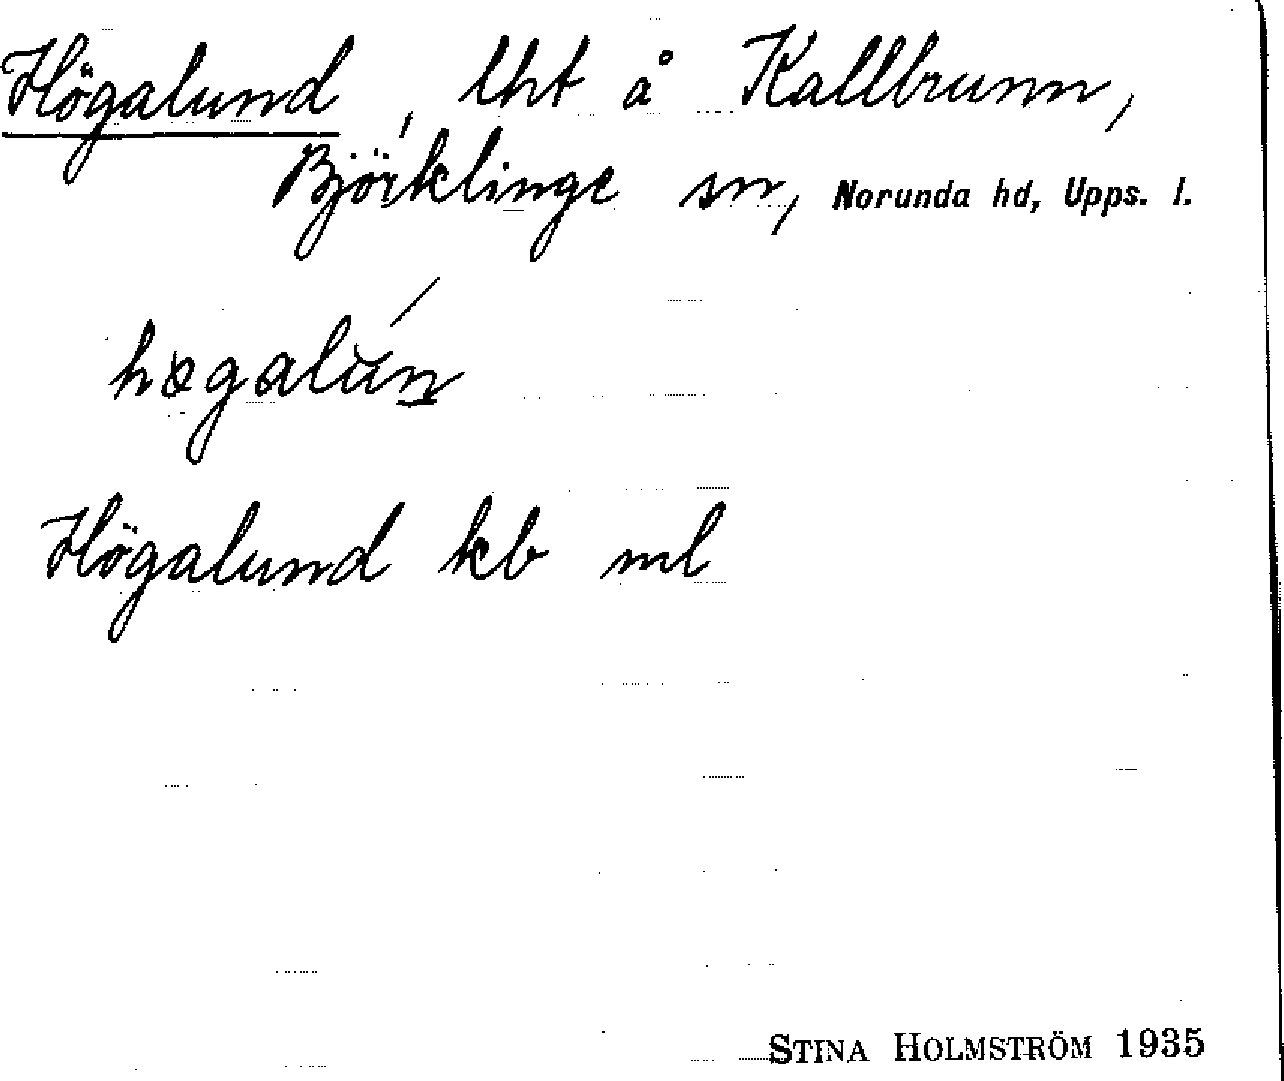 Högalund, lht å Kallbrunn,
Björklinge sn, Norunda hd, Upps. l.
høgalún
Högalund kb ml
STINA HOLMSTRÖM 1935